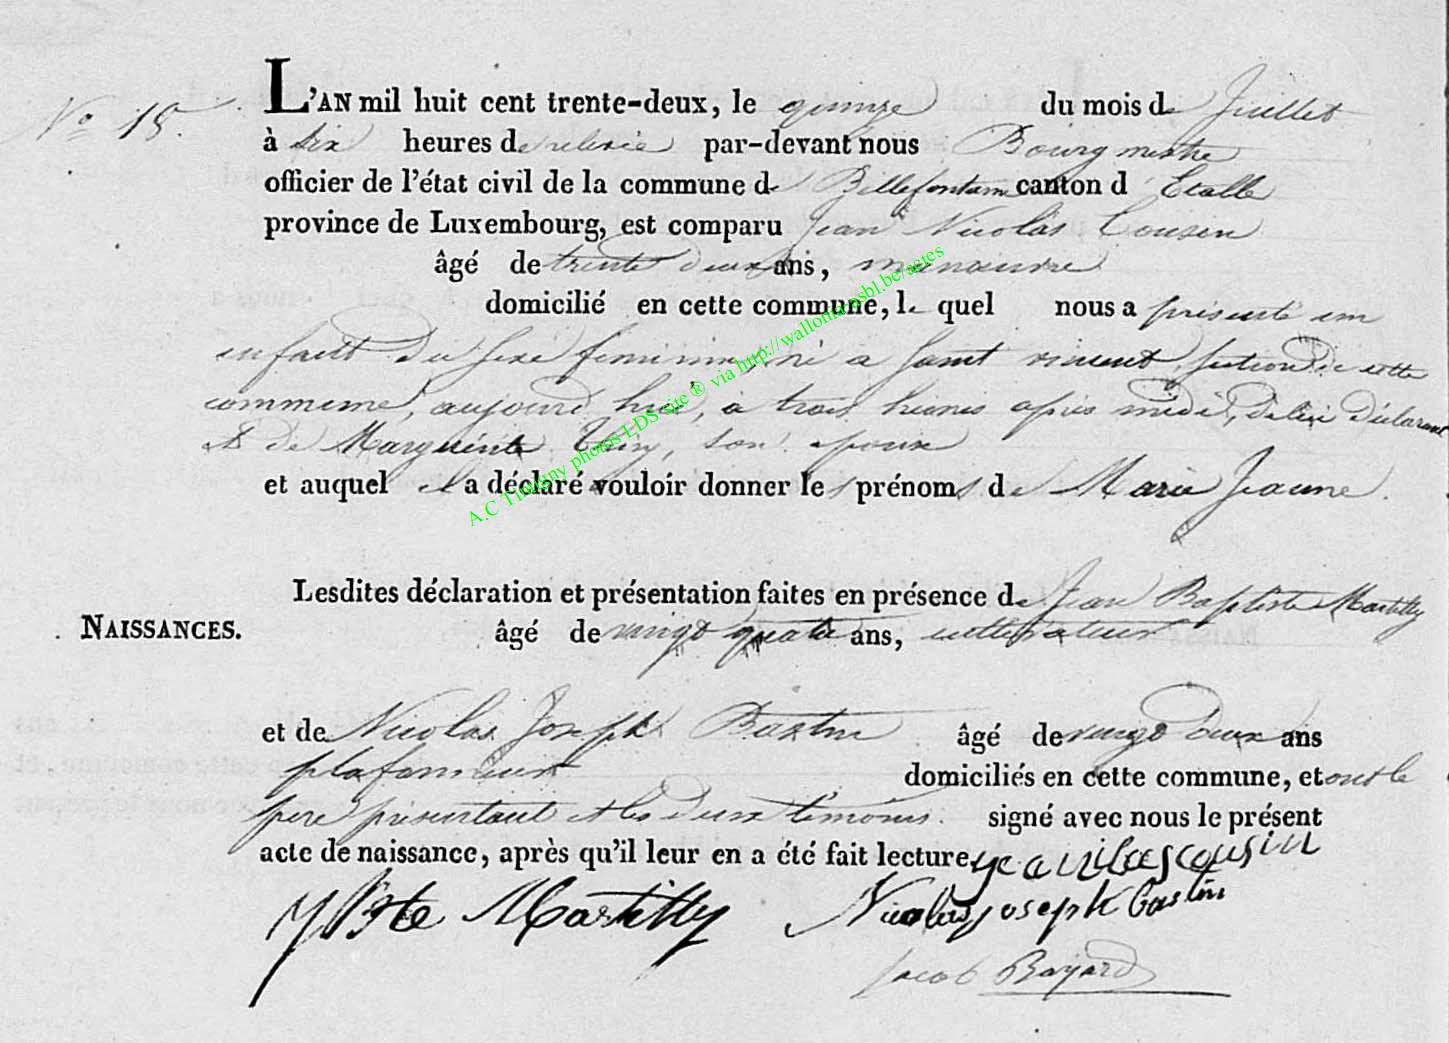 N° 18.
L'AN mil huit cent trente-deux, le quinze du mois de Juillet
à six heures de relevée par-devant nous Bourgmestre
officier de l'état civil de la commune de Bellefontaine canton d'Etalle
province de Luxembourg, est comparu Jean Nicolas Cousin
âgé de trente deux ans, manœuvre
domicilié en cette commune, le quel nous a présenté un
enfant du sexe feminin, né a Saint vincent, section de cette
commune, aujourd'hui, à trois heures après midi, de lui déclarant
& de Marguerite Thiry, son epouse
et auquel il a déclaré vouloir donner les prénoms de Marie Jeanne.
Lesdites déclaration et présentation faites en présence de Jean Baptiste Martilly
NAISSANCES.
âgé de vingt quatre ans, cultivateur
et de Nicolas Joseph Bastin âgé de vingt deux ans
plafonneur domiciliés en cette commune, et ont le
père présentant et les deux témoins. signé avec nous le présent
acte de naissance, après qu'il leur en a été fait lecture
jean nicolas cousin
JBte Martilly Nicolas joseph bastin
Jacob Bayard
A.C Tintigny photos LDS site ® via http://wallonia-asbl.be/actes